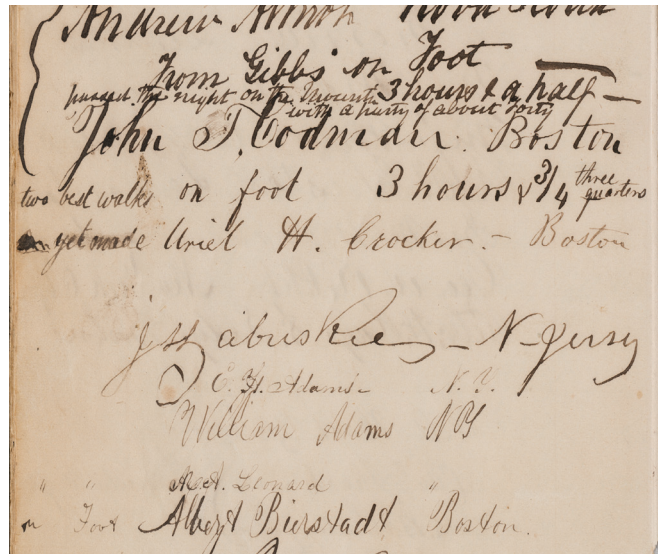 Andrew
From Gibbs on Foot
passed the night on the Mount 3 hours & a half —
with a party of about forty
John T. Codman. Boston
two best walks on foot 3 hours & 3/4 three quarters
yet made Uriel H. Crocker. – Boston
J H Zabriskie – N Jersey
C. H. Adams – N. Y.
William Adams NY
" " A. Leonard "
on Foot Albert Bierstadt Boston.